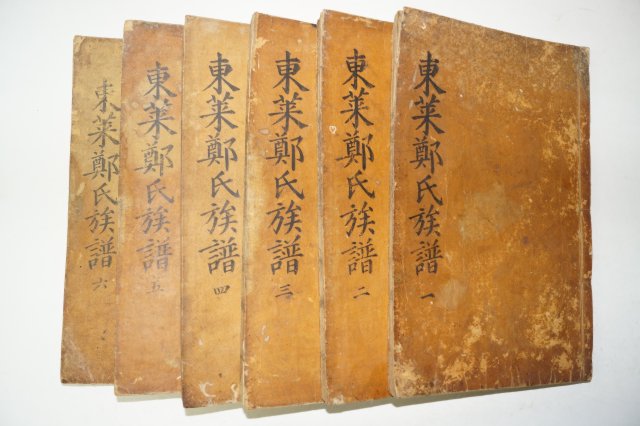 東萊鄭氏族譜 一
東萊鄭氏族譜 二
東萊鄭氏族譜 三
東萊鄭氏族譜 四
東萊鄭氏族譜 五
東萊鄭氏族譜 六